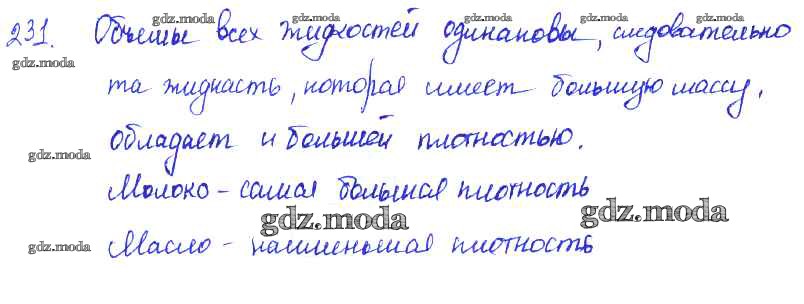 gdz.moda gdz.moda gdz.moda gdz.moda gdz.moda
231. Объемы всех жидкостей одинаковы, следовательно
gdz.moda
та жидкасть, которая имеет большую массу,
обладает и большей плотностью.
gdz.moda
Молоко - самая большая плотность
gdz.moda gdz.moda
Масло - наименьшая плотность
gdz.moda